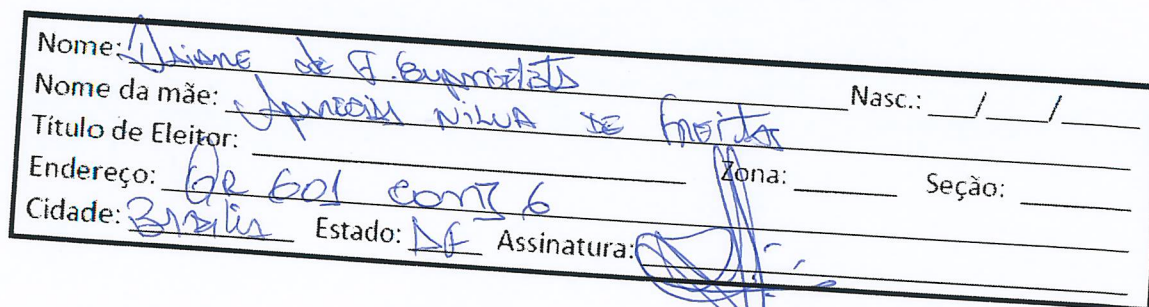 Nome: de F. Nasc.: / /
Nome da mãe: Nilva de Freitas
Título de Eleitor: Zona: Seção:
Endereço: QR 601 conj 6
Cidade: Brasília Estado: DF Assinatura: